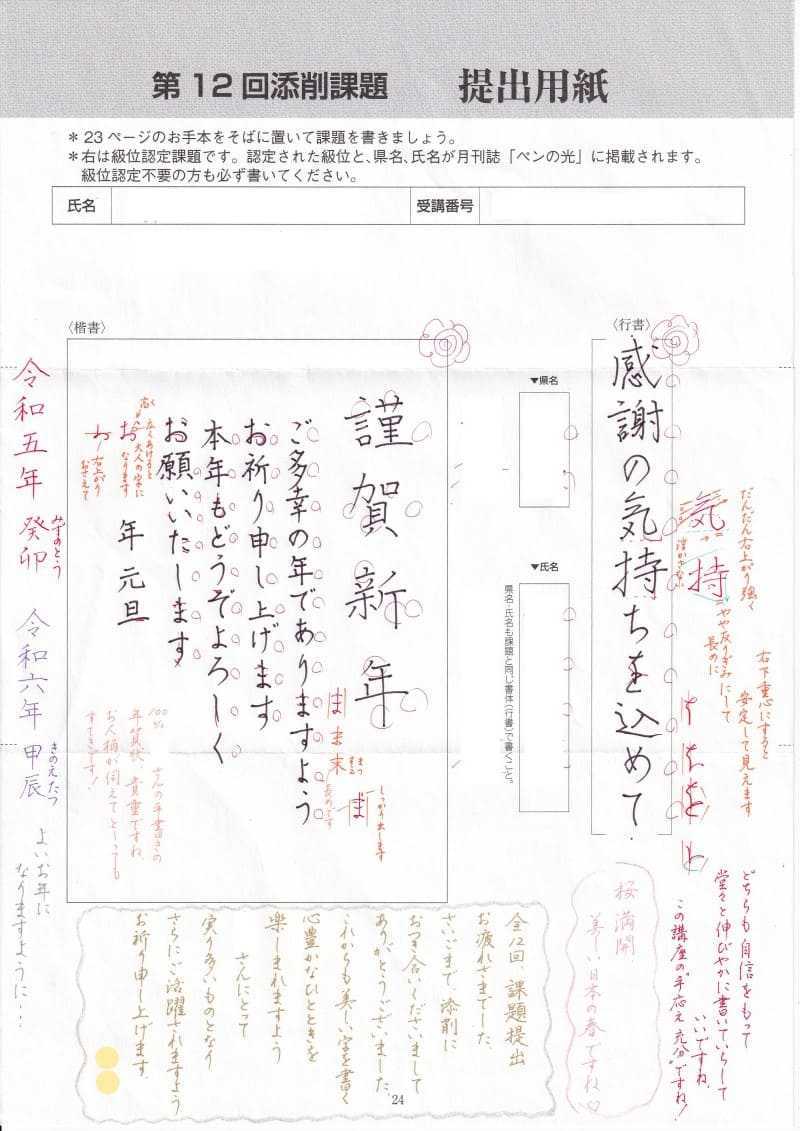 第12回添削課題　提出用紙
＊23ページのお手本をそばに置いて課題を書きましょう。
＊右は級位認定課題です。認定された級位と、県名、氏名が月刊誌「ペンの光」に掲載されます。
級位認定不要の方も必ず書いてください。
氏名
受講番号
〈行書〉
感謝の気持ちを込めて
▼県名
▼氏名
県名・氏名も課題と同じ書体（行書）で書くこと。
〈楷書〉
謹賀新年
ご多幸の年でありますよう
お祈り申し上げます
本年もどうぞよろしく
お願いいたします
年元旦
だんだん右上がり強く
気持
やや反りぎみにして
長めに
右下重心にすると
安定して見えます
どちらも自信をもって
堂々と伸びやかに書いていらして
いいですね。
この講座の“手応え充分”ですね！
桜満開
美しい日本の春ですね♡
ま ま 末
長めです
しっかり出します
お
広くあけると
大人の字に
なります
右上がり
おさえて
100%
さんの手書きの
年賀状、貴重ですね。
お人柄が伺えてとーっても
すてきです！
令和五年 癸卯
みずのとう
令和六年 甲辰
きのえたつ
よいお年に
なりますように…
全12回、課題提出
お疲れさまでした。
さいごまで、添削に
おつき合いくださいまして
ありがとうございました。
これからも美しい字を書く
心豊かなひとときを
楽しまれますよう
さんにとって
実り多いものとなり
さらにご活躍されますよう
お祈り申し上げます。
24